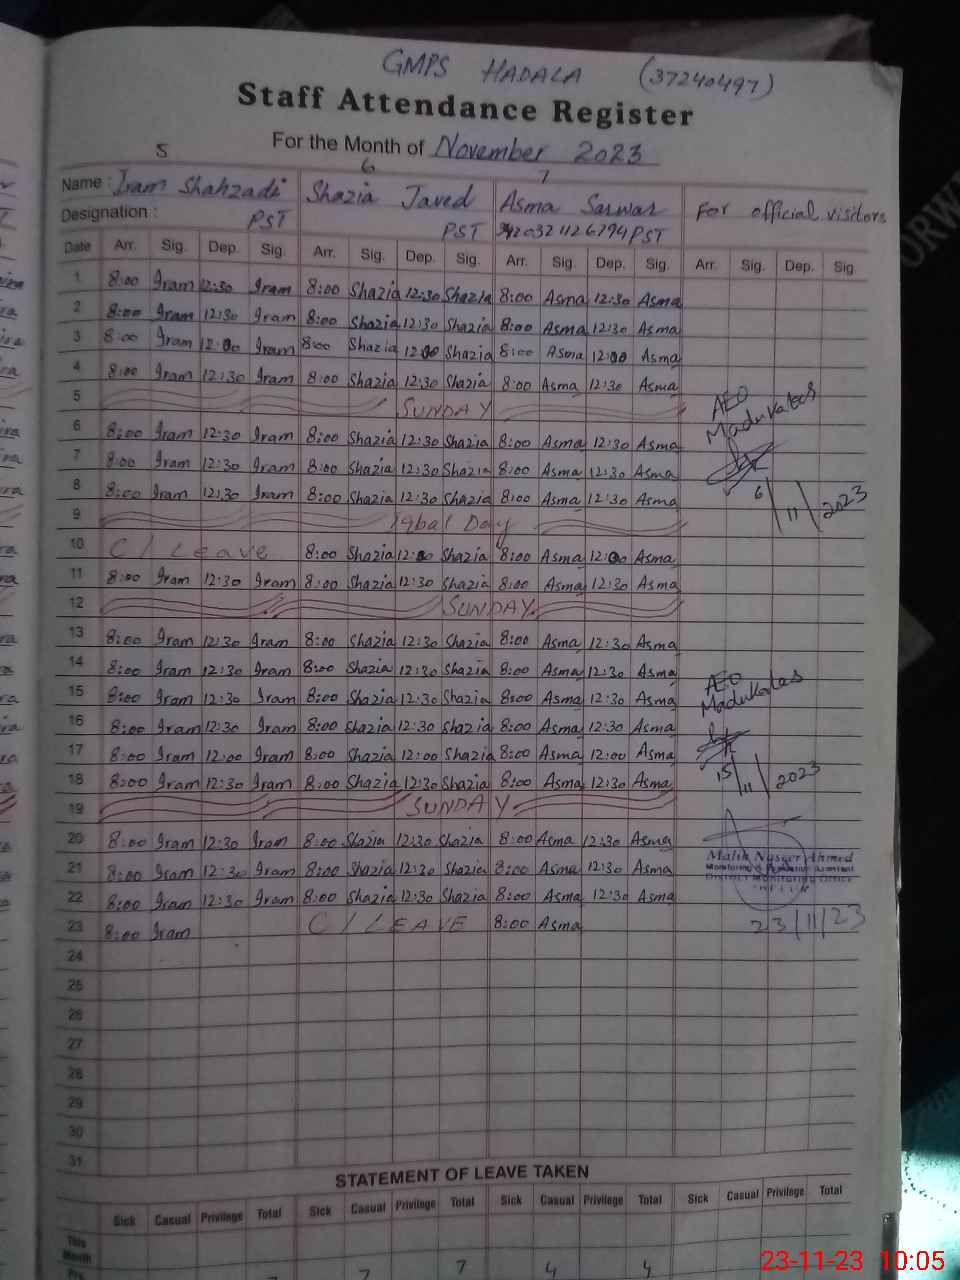 GMPS HADALA (37240497)
Staff Attendance Register
For the Month of November 2023
5 6 7
Name : Iram Shahzadi Shazia Javed Asma Sarwar For official visitors
Designation : PST PST PST
Date Arr. Sig. Dep. Sig. Arr. Sig. Dep. Sig. Arr. Sig. Dep. Sig. Arr. Sig. Dep. Sig.
1 8:00 Iram 12:30 Iram 8:00 Shazia 12:30 Shazia 8:00 Asma 12:30 Asma
2 8:00 Iram 12:30 Iram 8:00 Shazia 12:30 Shazia 8:00 Asma 12:30 Asma
3 8:00 Iram 12:00 Iram 8:00 Shazia 12:00 Shazia 8:00 Asma 12:00 Asma
4 8:00 Iram 12:30 Iram 8:00 Shazia 12:30 Shazia 8:00 Asma 12:30 Asma
5 SUNDAY AEO
6 8:00 Iram 12:30 Iram 8:00 Shazia 12:30 Shazia 8:00 Asma 12:30 Asma Madukalas
7 8:00 Iram 12:30 Iram 8:00 Shazia 12:30 Shazia 8:00 Asma 12:30 Asma
8 8:00 Iram 12:30 Iram 8:00 Shazia 12:30 Shazia 8:00 Asma 12:30 Asma 6/11/2023
9 Iqbal Day
10 C/Leave 8:00 Shazia 12:00 Shazia 8:00 Asma 12:00 Asma
11 8:00 Iram 12:30 Iram 8:00 Shazia 12:30 Shazia 8:00 Asma 12:30 Asma
12 SUNDAY
13 8:00 Iram 12:30 Iram 8:00 Shazia 12:30 Shazia 8:00 Asma 12:30 Asma
14 8:00 Iram 12:30 Iram 8:00 Shazia 12:30 Shazia 8:00 Asma 12:30 Asma AEO
15 8:00 Iram 12:30 Iram 8:00 Shazia 12:30 Shazia 8:00 Asma 12:30 Asma Madukalas
16 8:00 Iram 12:30 Iram 8:00 Shazia 12:30 Shazia 8:00 Asma 12:30 Asma
17 8:00 Iram 12:00 Iram 8:00 Shazia 12:00 Shazia 8:00 Asma 12:00 Asma
18 8:00 Iram 12:30 Iram 8:00 Shazia 12:30 Shazia 8:00 Asma 12:30 Asma 15/11/2023
19 SUNDAY
20 8:00 Iram 12:30 Iram 8:00 Shazia 12:30 Shazia 8:00 Asma 12:30 Asma
Malik Naseer Ahmed
21 8:00 Iram 12:30 Iram 8:00 Shazia 12:30 Shazia 8:00 Asma 12:30 Asma
22 8:00 Iram 12:30 Iram 8:00 Shazia 12:30 Shazia 8:00 Asma 12:30 Asma
23 8:00 Iram C/LEAVE 8:00 Asma 23/11/23
24
25
26
27
28
29
30
31
STATEMENT OF LEAVE TAKEN
Sick Casual Privilege Total Sick Casual Privilege Total Sick Casual Privilege Total Sick Casual Privilege Total
This
Month
7 7 4 4
23-11-23 10:05